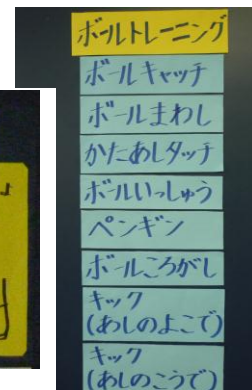 ボールトレーニング
ボールキャッチ
ボールまわし
かたあしタッチ
ボールいっしゅう
ペンギン
ボールころがし
キック
(あしのよこで)
キック
(あしのこうで)